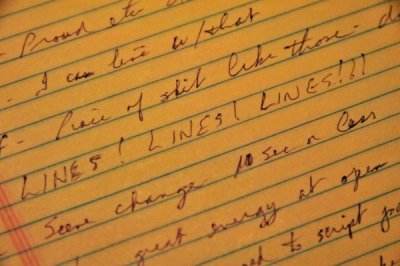 - Proud etc
- I can live w/ that
- Piece of shit like those - d
LINES! LINES! LINES!!!
Scene change 10 sec or less
great energy at open
to script